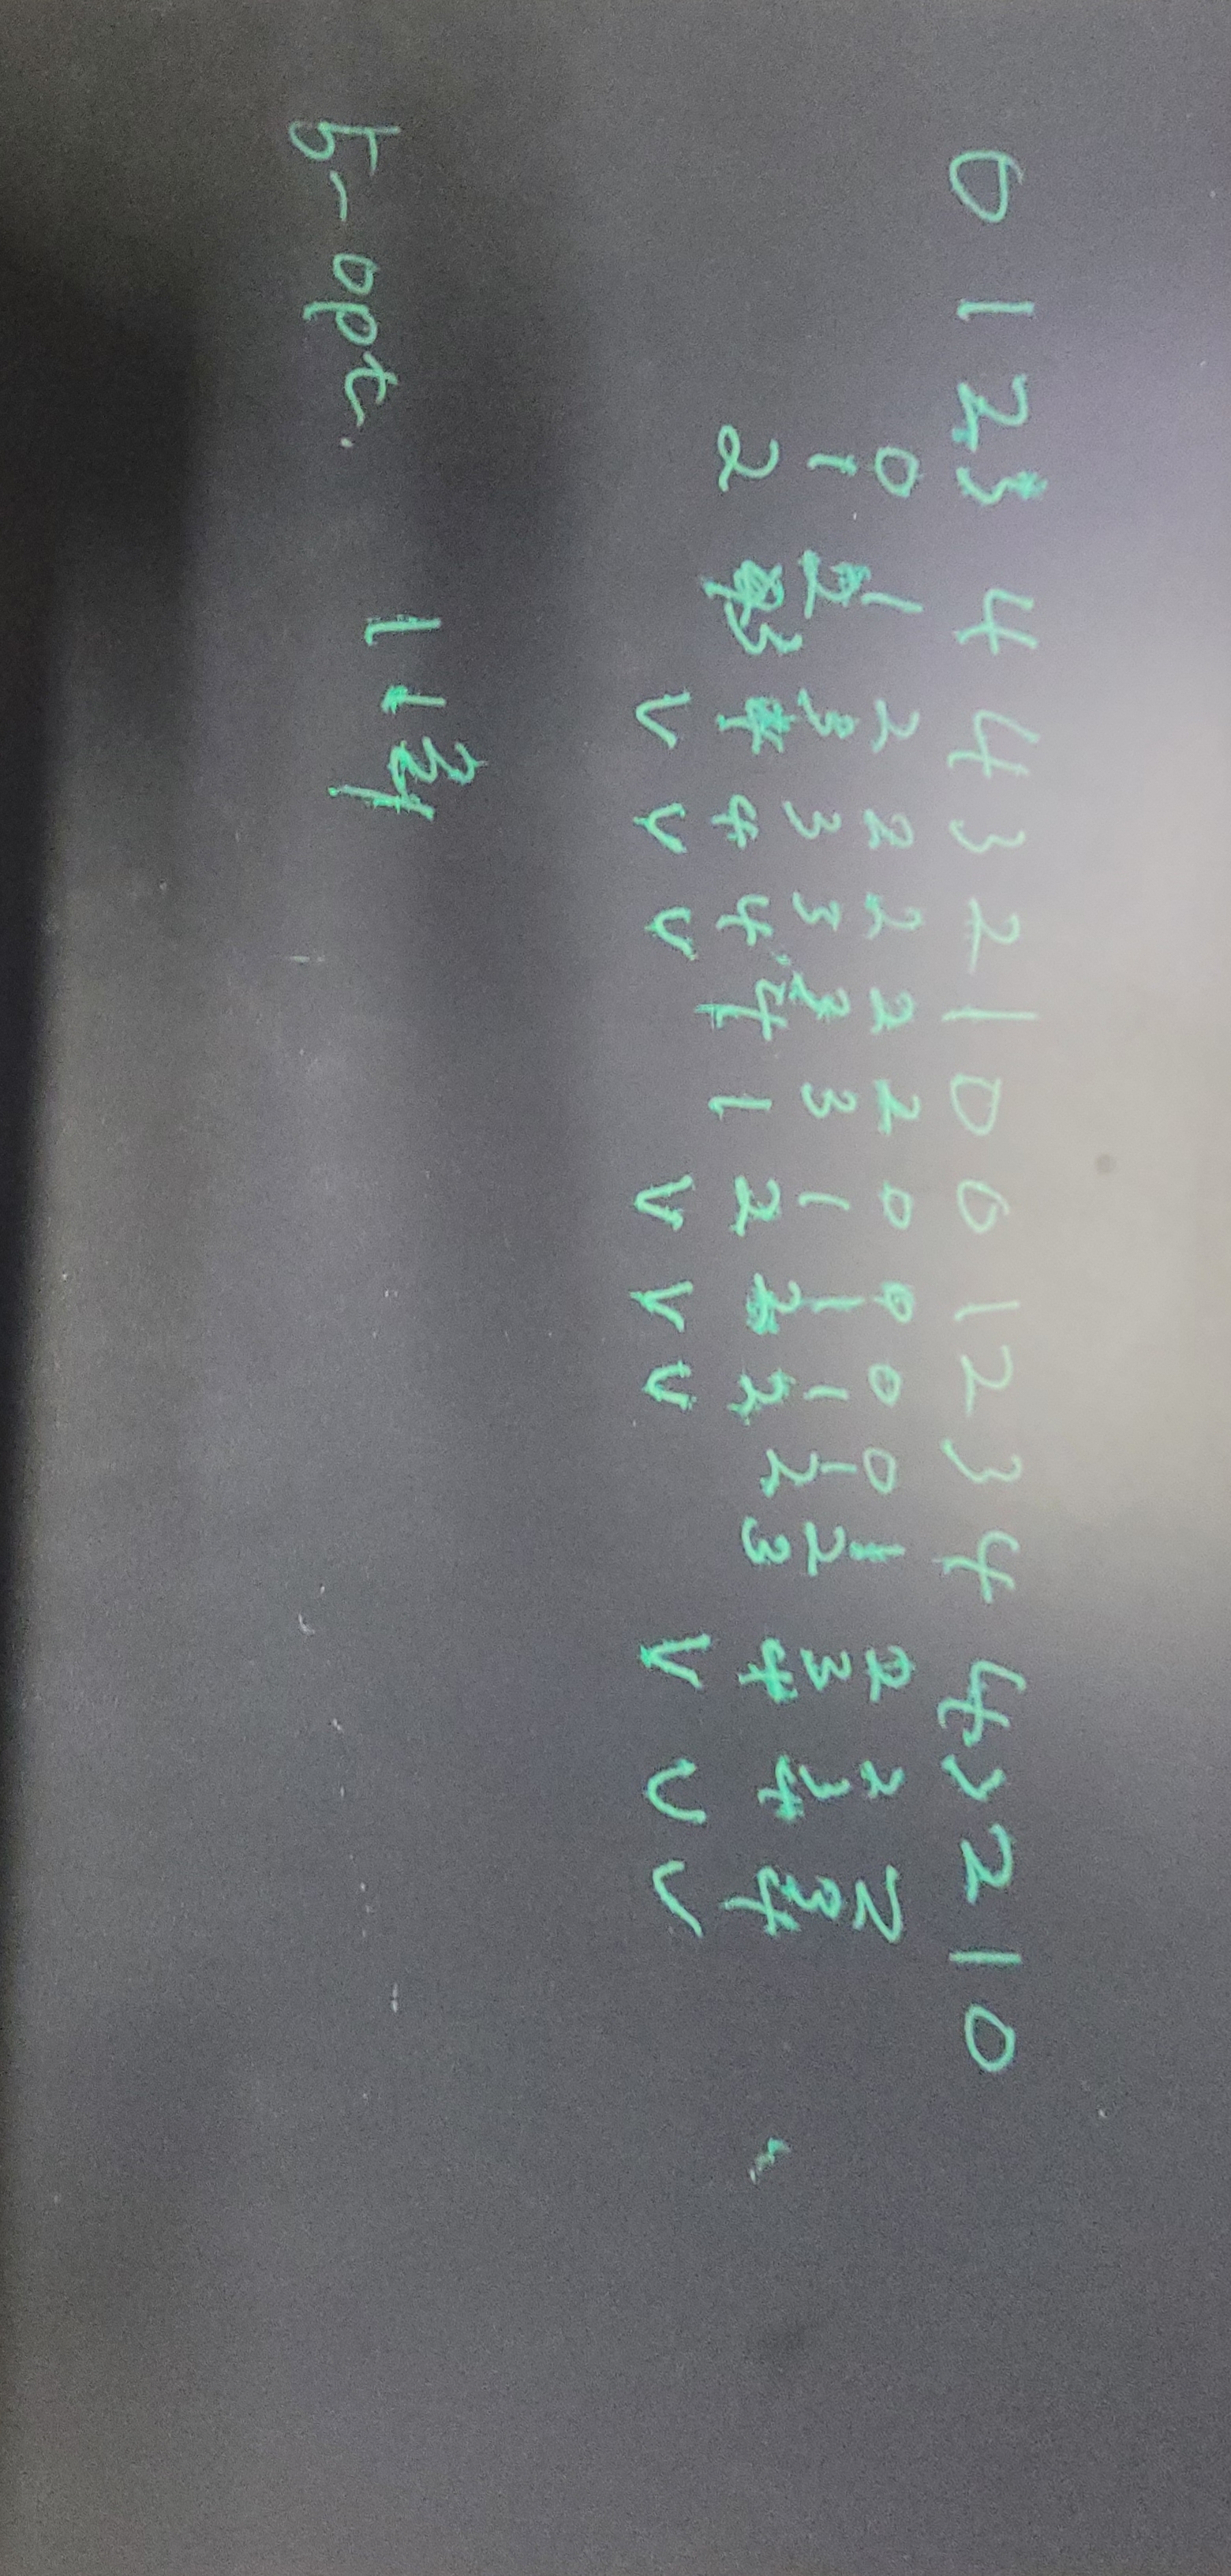 0 1 2 3 4 4 3 2 1 0 0 1 2 3 4 4 3 2 1 0
0 1 2 2 2 2 2 0 0 0 0 1 2 2 2
1 2 3 3 3 3 3 1 1 1 1 2 3 3 3
2 3 4 4 4 4 1 2 2 2 2 3 4 4 4
V V V V V V V V V
5-opt. 1 1